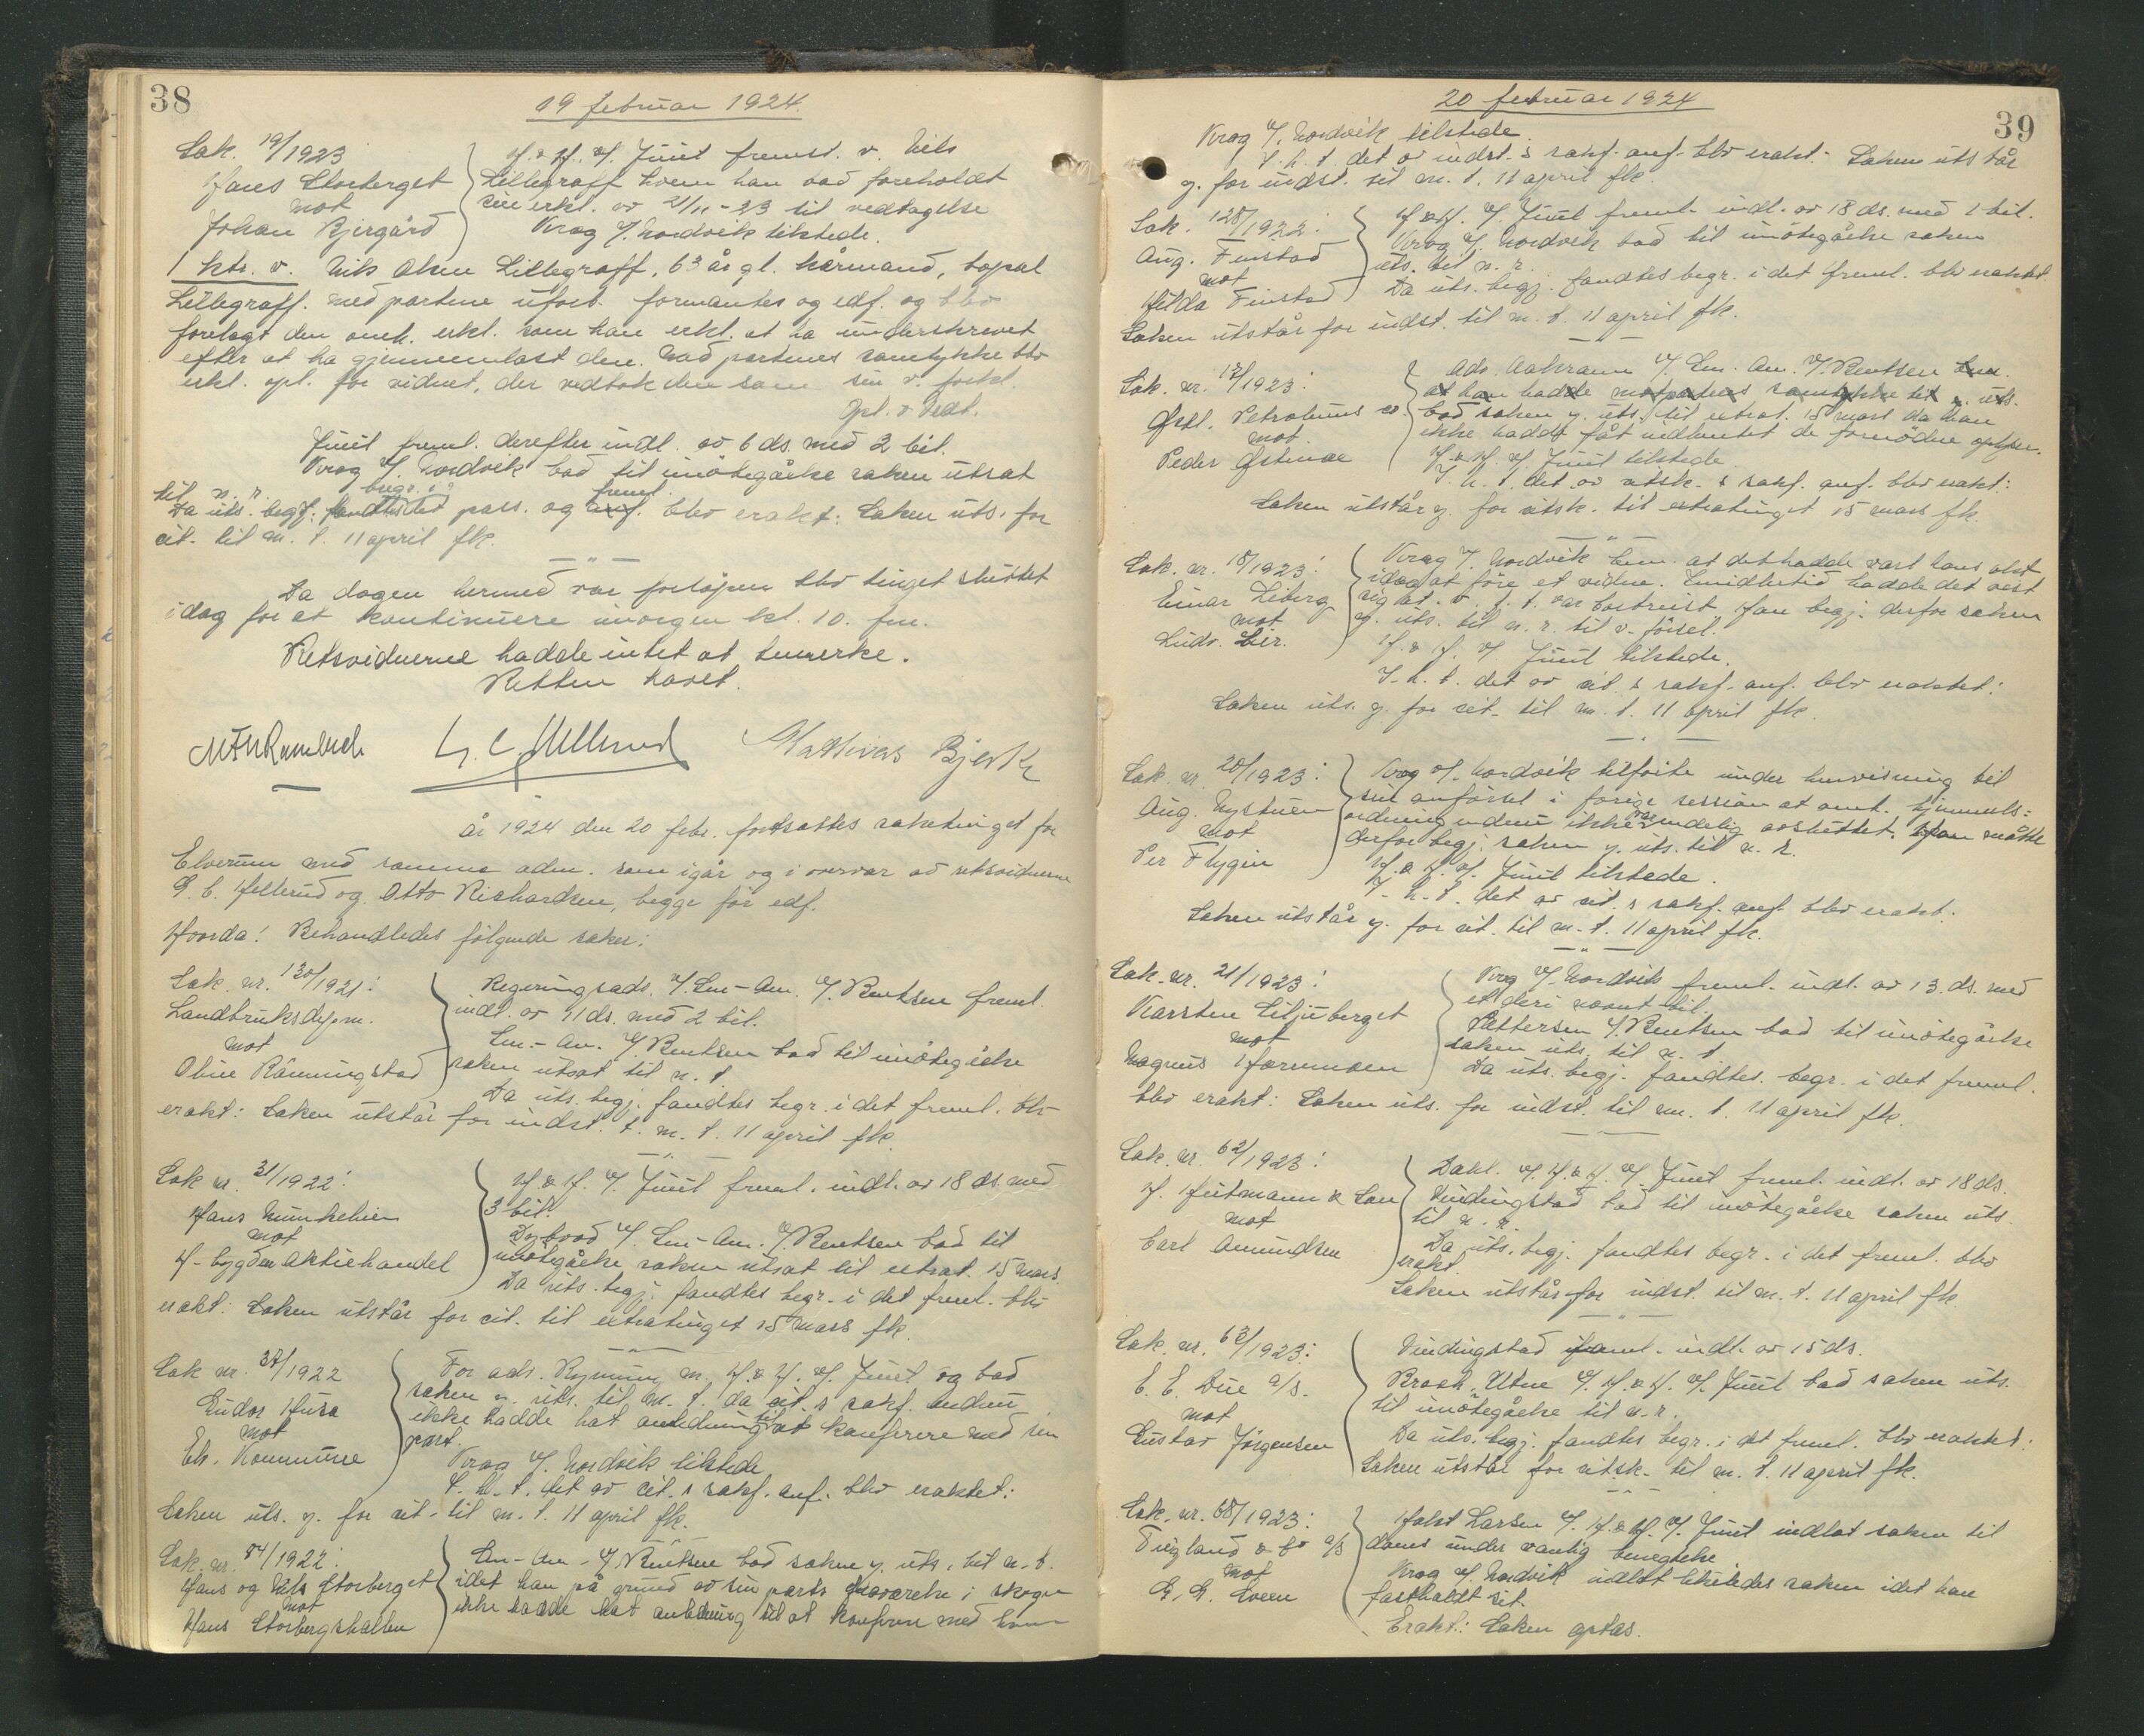 38
19 februar 1924.
Sak. 19/1923
Hans Storberget
mot
Johan Bjergård
H. & H. v/ Juul fremst. v. Nils
Lillegraff hvem han bad foreholdt
sin erkl. av 2/11-23 til vedtagelse
Krog v/ Nordvik tilstede.
1 ktr. v. Nils Olsen Lillegraff, 63 år gl. kårmand, bopæl
Lillegraff. med partene ufort. formantes og edf. og blev
forelagt den omh. erkl. som han erkl. at ha underskrevet
efter at ha gjennemlæst den. Med partenes samtykke blev
erkl. opl. for vidnet, der vedtok den som sin v. forkl.
Opl. & Vedt.
Juul freml. derefter indl. av 6 ds. med 2 bil.
Krog v/ Nordvik bad til imøtegåelse saken utsat
til n. r.
Da uts. begj. fandtes begr. i det pass. og freml. blev erakt: Saken uts. for
cit. til m. t. 11 april fk.
Da dagen hermed var forløpen blev tinget sluttet
idag for at kontinuere imorgen kl. 10. fm.
Retsvidnerne hadde intet at bemerke.
Retten hævet.
L. C. Hellerud Mathias Bjerke
År 1924 den 20 febr. fortsattes saketinget for
Elverum med samme adm. som igår og i overvær av retsvidnerne
L. C. Hellerud og Otto Rishardsen, begge før edf.
Hvorda! Behandledes følgende saker:
Sak. nr. 130/1921:
Landbruksdepm.
mot
Oline Rønningstad
Regjeringsadv. v/ Em-Am. v/ Bentsen freml.
indl. av 11 ds. med 2 bil.
Em.-Am. v/ Bentsen bad til imøtegåelse
saken utsat til n. t.
Da uts. begj. fandtes begr. i det freml. blev
erakt: Saken utstår for indst. t. m. t. 11 april fk.
Sak nr. 31/1922:
Hans Munkelien
mot
H-bygden Aktiehandel
H & H. v/ Juul freml. indl. av 18 ds. med
3 bil.
Dybvad v/ Em-Am. v/ Bentsen bad til
imøtegåelse saken utsat til extrat. 15 mars
Da uts. begj. fandtes begr. i det freml. blev
erakt: Saken utstår for cit. til extratinget 15 mars fk.
Sak nr. 37/1922
Eudor Husa
mot
Elv. Kommune
For adv. Rynning m. H. & H. v/ Juul og bad
saken y. uts. til m. t. da cit. s sakf. endnu
ikke hadde hat anledning til at konferere med sin
part.
Krog v/ Nordvik tilstede
I. h. t. det av cit. s sakf. anf. blev eraktet:
Saken uts. y. for cit. til m. t. 11 april fk.
Sak. nr. 84/1922:
Hans og Nils Storberget
mot
Hans Storbergshallen
Em-Am. v/ Bentsen bad saken y. uts. til n. t.
idet han på grund av sin parts fraværelse i skogen
ikke hadde hat anledning til at konferere med ham
20 februar 1924
39
Krog v/ Nordvik tilstede.
I. h. t. det av indst. s sakf. anf. blev erakt: Saken utstår
y. for indst. til m. t. 11 april fk
Sak. 128/1922:
Aug. Finstad
mot
Hilda Finstad
H & H. v/ Juul freml. indl. av 18 ds. med 1 bil.
Krog v/ Nordvik bad til imøtegåelse saken
uts. til n. r.
Da uts. begj. fandtes begr. i det freml. blev eraktet
Saken utstår for indst. til m. t. 11 april fk.
Sak. nr. 17/1923:
Østl. Petroleums co.
mot.
Peder Østmoe
Adv. Aakrann v/ Em. Am. v/ Bentsen bem.
at han hadde motpartens samtykke til y. uts.
bad saken y. uts. til extrat. 15 mars da han
ikke hadde fåt indhentet de fornødne oplysn.
H & H. v/ Juul tilstede.
I. h. t. det av citsk. s sakf. anf. blev erakt:
Saken utstår y. for citsk. til extratinget 15 mars fk.
Sak. nr. 18/1923:
Einar Liberg
mot
Ludv. Lier.
Krog v/ Nordvik bem. at det hadde vært hans akt
idag at føre et vidne. Imidlertid hadde det vist
sig at v. f. t. var bortreist. Han begj. derfor saken
y. uts. til n. r. til v. førsel.
H. & H. v/ Juul tilstede.
I. h. t. det av cit. s sakf. anf. blev eraktet:
Saken uts. y. for cit. til m. t. 11 april fk.
Sak nr. 20/1923:
Aug. Nystuen
mot
Per Flygin
Krog v/ Nordvik tilførte under henvisning til
sin anførsel i forrige session at omt. hjemmels-
ordning endnu ikke var endelig avsluttet. Han måtte
derfor begj. saken y. uts. til n. r.
H. & H. v/ Juul tilstede.
I. h. t. det av cit. s sakf. anf. blev erakt.
Saken utstår y. for cit. til m. t. 11 april fk.
Sak. nr. 21/1923:
Karsten Liljuberget
mot
Magnus Hærnmoen
Krog v/ Nordvik freml. indl. av 13 ds. med
et deri nævnt bil.
Pettersen v/ Bentsen bad til imøtegåelse
saken uts. til n. t.
Da uts. begj. fandtes begr. i det freml.
blev erakt: Saken uts. for indst. til m. t. 11 april fk.
Sak. nr. 62/1923:
H. Hutmann & Søn
mot
Carl Amundsen
Dahl. v/ H. & H. v/ Juul freml. indl. av 18 ds.
Vindingstad bad til imøtegåelse saken uts.
til n. r.
Da uts. begj. fandtes begr. i det freml. blev
erakt.
Saken utstår for indst. til m. t. 11 april fk.
Sak. nr. 63/1923:
E. E. Due a/s.
mot
Gustav Jørgensen
Vindingstad freml. indl. av 15 ds.
Broch Utne v/ H. & H. v/ Juul bad saken uts.
til imøtegåelse til n. r.
Da uts. begj. fandtes begr. i det freml. blev eraktet:
Saken utstår for citsk. til m. t. 11 april fk.
Sak. nr. 68/1923:
Tvigland & Co a/s
mot
G. G. Sveen
Holst Larsen v/ H. & H. v/ Juul indlot saken til
doms under vanlig benegtelse
Krog v/ Nordvik indlot likeledes saken idet han
fastholdt sit.
Erakt: Saken optas.